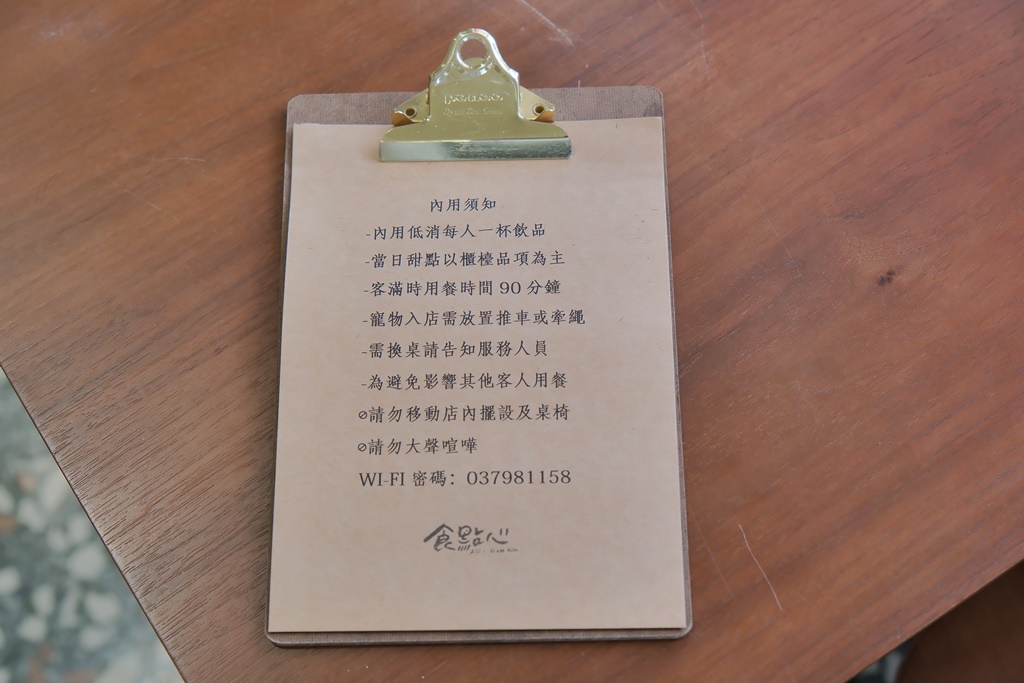 內用須知
-內用低消每人一杯飲品
-當日甜點以櫃檯品項為主
-客滿時用餐時間 90 分鐘
-寵物入店需放置推車或牽繩
-需換桌請告知服務人員
-為避免影響其他客人用餐
⊘請勿移動店內擺設及桌椅
⊘請勿大聲喧嘩
WI-FI 密碼：037981158
食點心